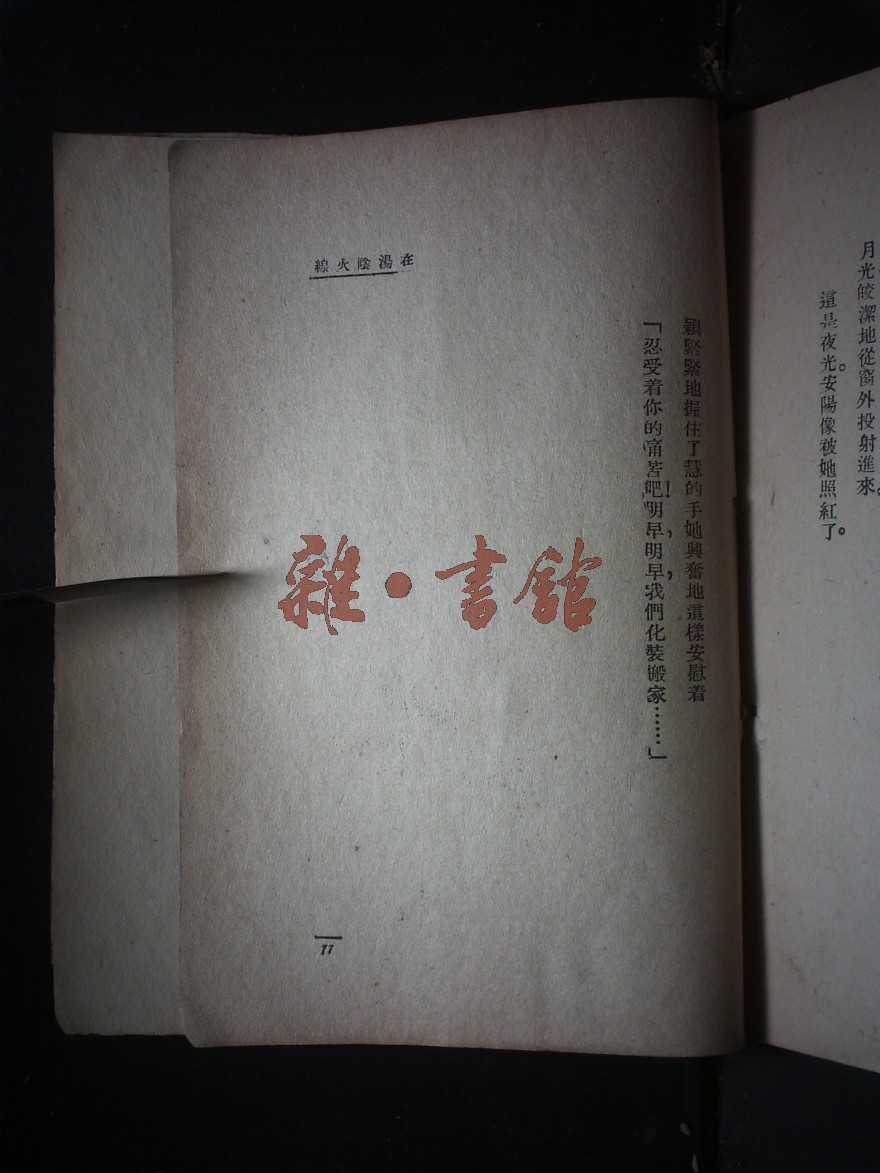 月光皎潔地從窗外投射進來。
這是夜光。安陽像被她照紅了。
在湯陰火線
穎緊緊地握住了慧的手她興奮地這樣安慰着
「忍受着你的痛苦吧!明早,明早,我們化裝搬家……」
77
雜·書館